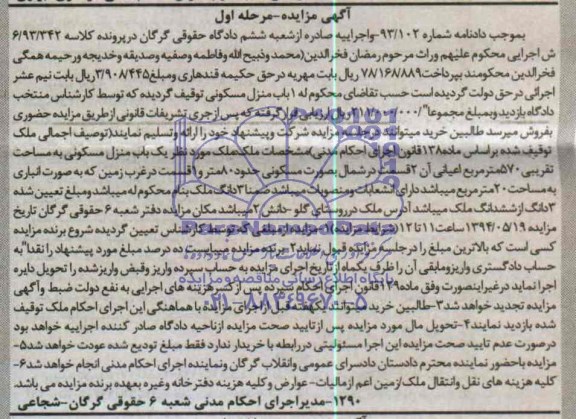 آگهی مزایده-مرحله اول
بموجب دادنامه شماره ۹۳/۱۰۲-واجراییه صادره ازشعبه ششم دادگاه حقوقی گرگان درپرونده کلاسه ۶/۹۳/۳۴۲
ش اجرایی محکوم علیهم وراث مرحوم رمضان فخرالدین(محمد وذبیح الله وفاطمه وصفیه وصدیقه وخدیجه ورحیمه همگی
فخرالدین محکومند بپرداخت۷۸/۱۶۸/۸۸۹ ریال بابت مهریه درحق حکیمه قندهاری ومبلغ۳/۹۰۸/۴۴۵ریال بابت نیم عشر
اجرائی درحق دولت گردیده است حسب تقاضای محکوم له ۱باب منزل مسکونی توقیف گردیده که توسط کارشناس منتخب
دادگاه بازدید وبمبلغ مجموعا" ریال ارزیابی قرارگرفته که پس ازجری تشریفات قانونی ازطریق مزایده حضوری
بفروش میرسد طالبین خرید میتوانند درجلسه مزایده شرکت وپیشنهاد خود را ارائه وتسلیم نمایند(توصیف اجمالی ملک
توقیف شده براساس ماده۱۳۸قانون اجرای احکام مدنی)مشخصات ملک:ملک مورد نظر یک باب منزل مسکونی به مساحت
تقریبی ۵۷۰مترمربع اعیانی آن ۲قسمت درشمال بصورت مسکونی حدود۸۰متر و۱قسمت درغرب زمین که به صورت انباری
به مساحت ۲۰مترمربع میباشد دارای انشعابات ومنصوبات میباشد ضمنا۳دانگ ملک بنام محکوم له میباشد ومبلغ تعیین شده
۳دانگ ازششدانگ ملک میباشد آدرس ملک درروستای گلو-دانش ۲میباشد مکان مزایده دفتر شعبه ۶ حقوقی گرگان تاریخ
مزایده ۱۳۹۴/۰۵/۱۹ساعت۱۱تا۱۲(شرایط مزایده)۱-مزایده ازمبلغی که توسط کارشناس تعیین گردیده شروع برنده مزایده
کسی است که بالاترین مبلغ را درجلسه مزایده قبول نماید۲-برنده مزایده میبایست ده درصد مبلغ مورد پیشنهاد را نقدا"به
حساب دادگستری واریزومابقی آن را ظرف یکماه ازتاریخ اجرای مزایده به حساب سپرده واریز وقبض واریزشده را تحویل دایره
اجرا نماید درغیراینصورت وفق ماده۱۲۹قانون اجرای احکام سپرده پس از کسرهزینه های اجرایی به نفع دولت ضبط وآگهی
مزایده تجدید خواهد شد۳-طالبین خرید میتوانند یکهفته قبل ازاجرای مزایده با هماهنگی این اجرای احکام ملک توقیف
شده بازدید نمایند۴-تحویل مال مورد مزایده پس ازتایید صحت مزایده ازناحیه دادگاه صادر کننده اجراییه خواهد بود
درصورت عدم تایید صحت مزایده این اجرا مسئولیتی دررابطه با خریدار ندارد فقط مبلغ تودیع شده عودت خواهد شد۵-
مزایده باحضور نماینده محترم دادستان دادسرای عمومی وانقلاب گرگان ونماینده اجرای احکام مدنی انجام خواهد شد۶-
کلیه هزینه های نقل وانتقال ملک‌زمین اعم ازمالیات- عوارض وکلیه هزینه دفترخانه وغیره بعهده برنده مزایده می باشد.
۱۲۹۰-مدیراجرای احکام مدنی شعبه ۶ حقوقی گرگان-شجاعی
پایگاه اطلاع رسانی مناقصه و مزایده
۰۲۱-۸۸۳۴۹۶۷۰-۵